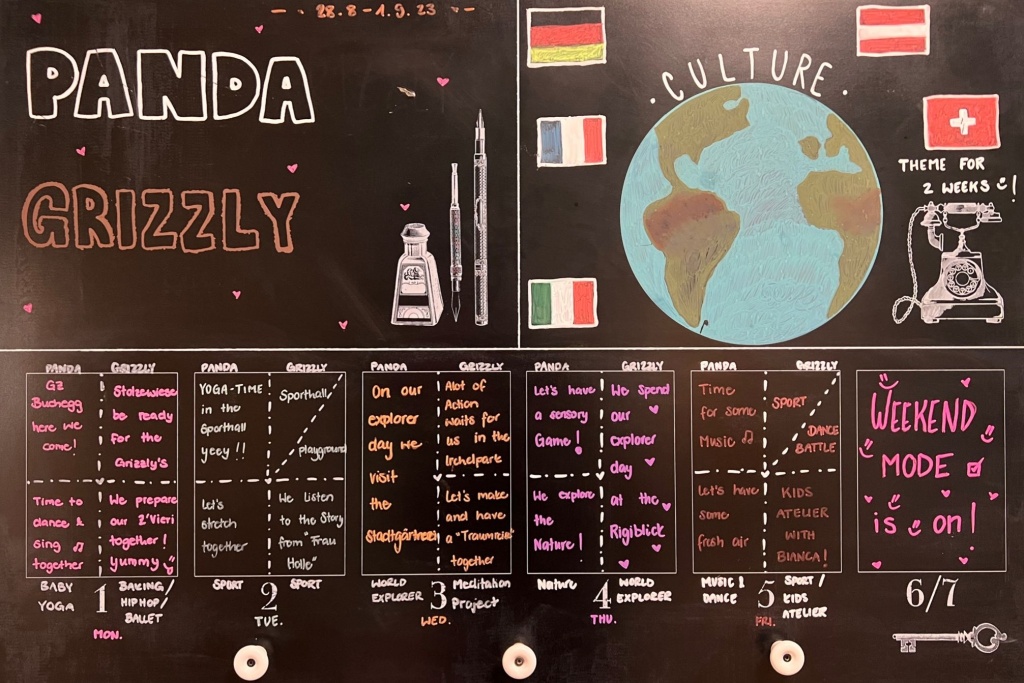 28.8 - 1.9.23
PANDA
GRIZZLY
CULTURE
THEME FOR
2 WEEKS !
PANDA
GZ
Buchegg
here we
come!
Time to
dance &
sing
together
BABY
YOGA
GRIZZLY
Stolzewiese
be ready
for the
Grizzly's
We prepare
our Z'Vieri
together!
yummy
BAKING/
HIPHOP/
BALLET
1
MON.
PANDA
YOGA-TIME
in the
Sporthall
yeey !!
Let's
stretch
together
SPORT
GRIZZLY
Sporthall
playground
We listen
to the Story
from "Frau
Holle"
SPORT
2
TUE.
PANDA
On our
explorer
day we
visit
the
Stadtgärtnerei
WORLD
EXPLORER
GRIZZLY
Alot of
Action
waits for
us in the
Irchelpark
Let's make
and have
together
Meditation
Project
3
WED.
PANDA
Let's have
a sensory
Game!
We explore
the
Nature!
Nature
GRIZZLY
We spend
our
explorer
day
at the
Rigiblick
WORLD
EXPLORER
4
THU.
PANDA
Time
for some
Music
Let's have
some
fresh air
MUSIC &
DANCE
GRIZZLY
SPORT
DANCE
BATTLE
KIDS
ATELIER
WITH
BIANCA!
SPORT /
KIDS
ATELIER
5
FRI.
WEEKEND
MODE
is on!
6/7